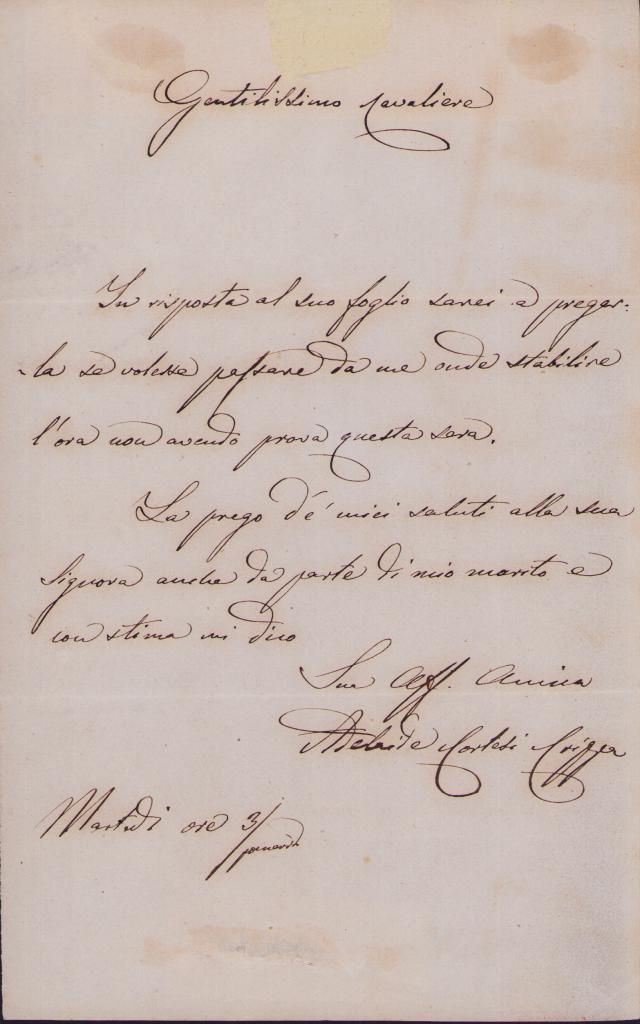 Gentilissimo Cavaliere
In risposta al suo foglio sarei a pregar-
-la se volesse passare da me onde stabilire
l'ora non avendo prova questa sera.
La prego d'é miei saluti alla sua
Signora anche da parte di mio marito e
con stima mi dico
Sua Aff. Amica
Adelaide Cortesi
Martedi ore 3/